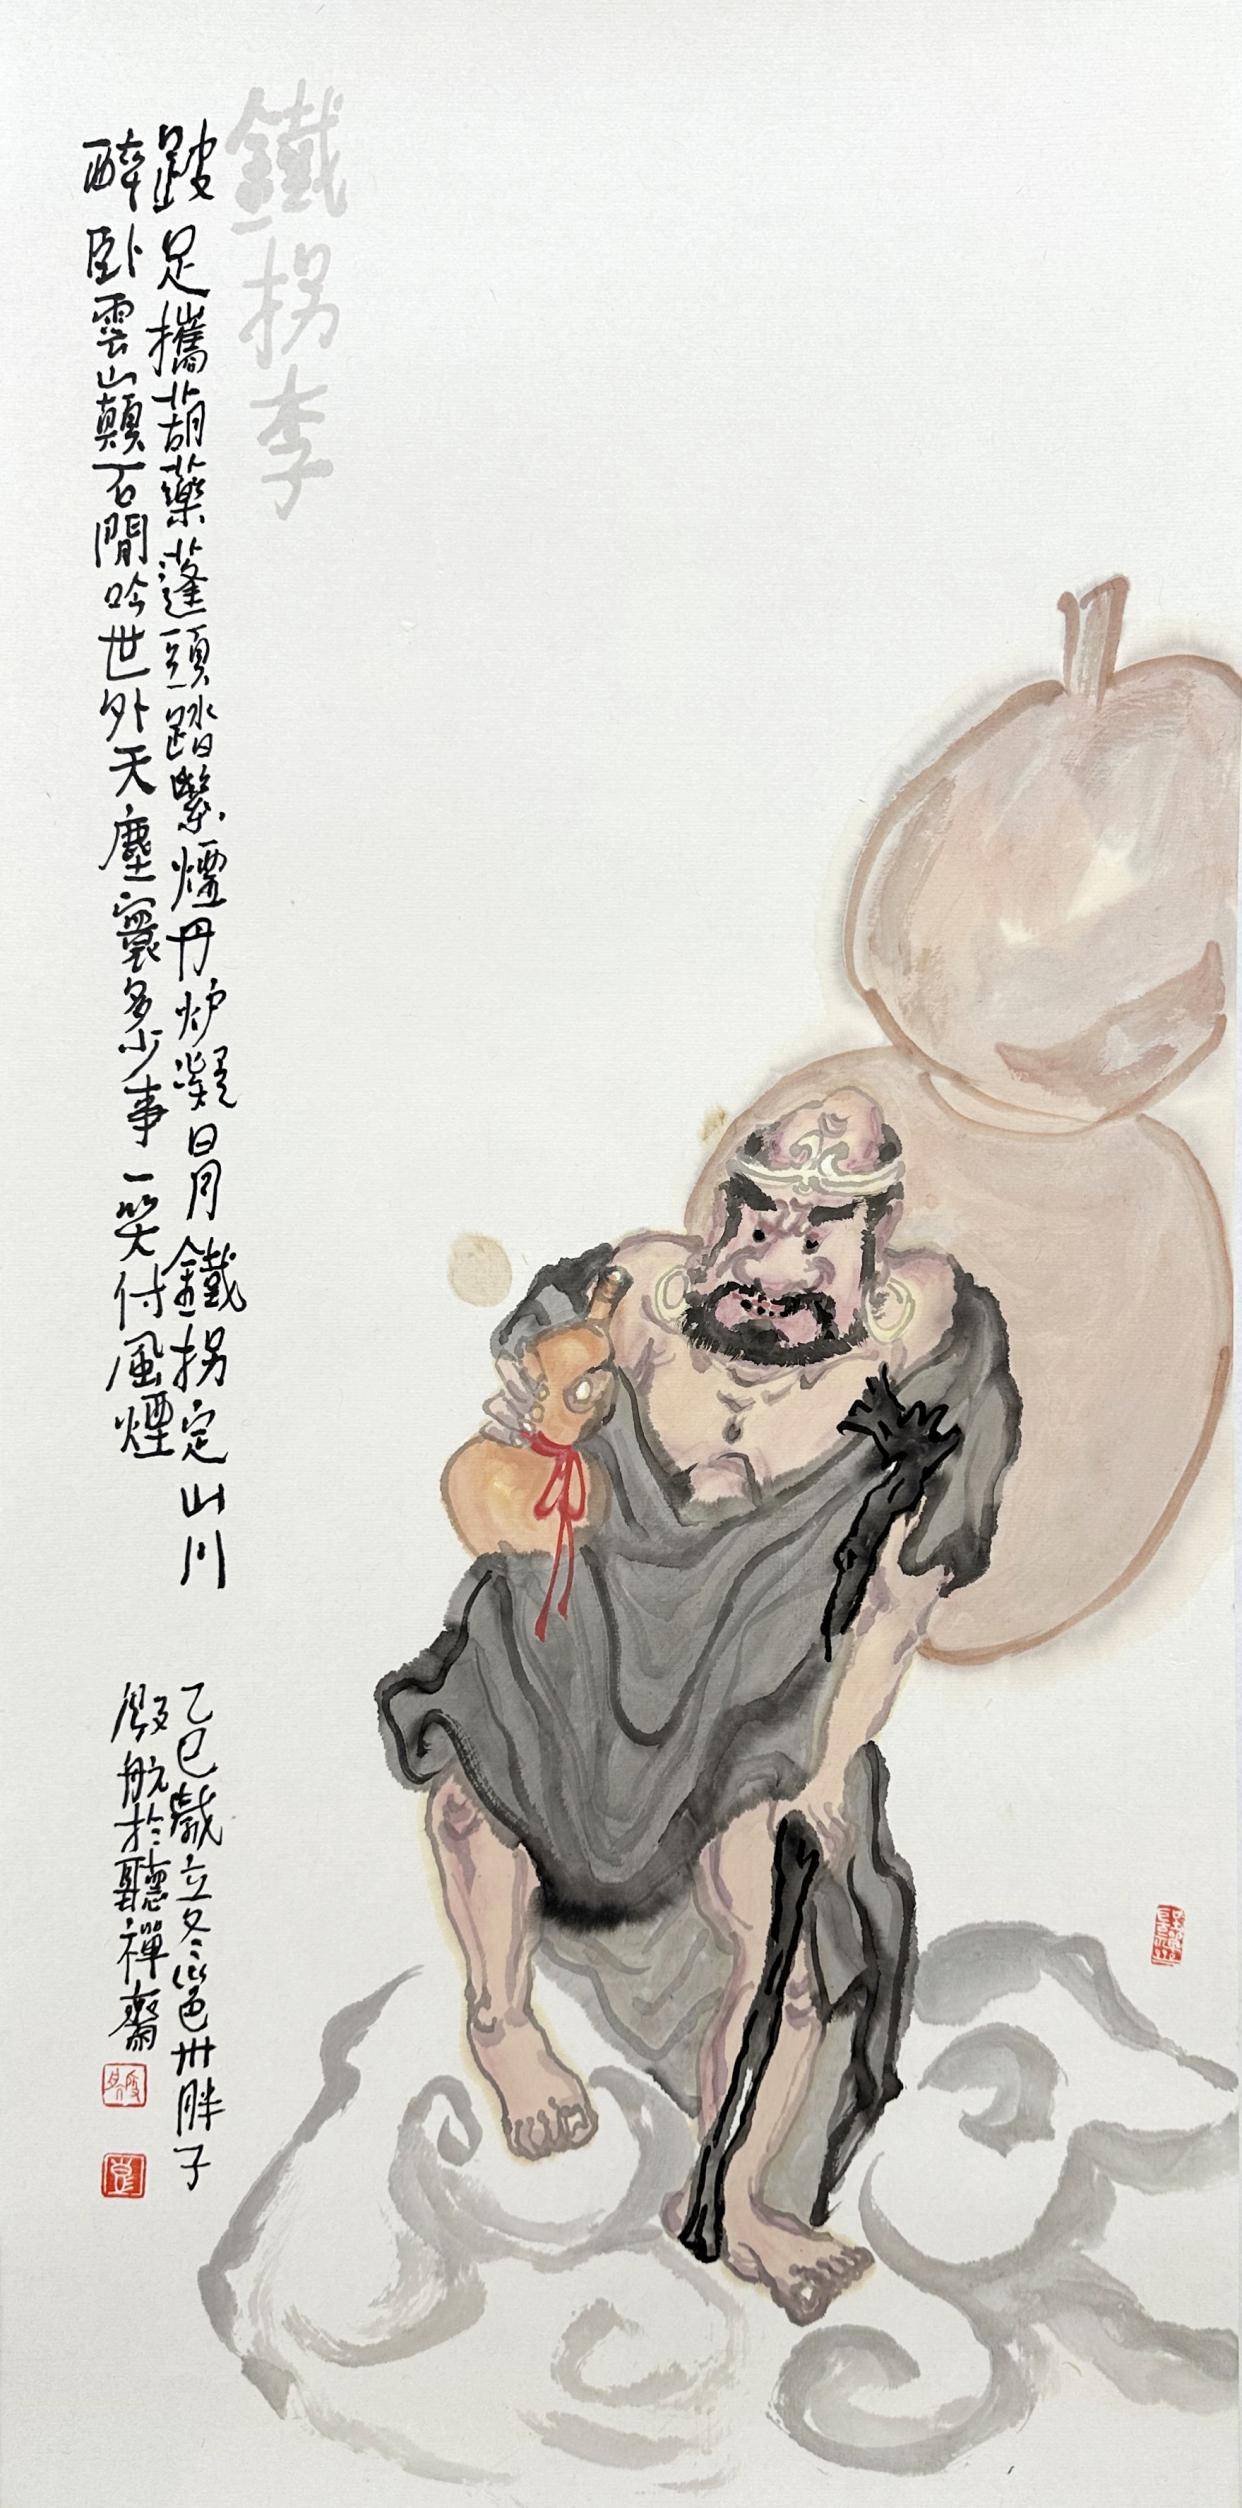 鐵拐李
跛足攜葫藥蓬頭踏紫煙丹炉凝日月鐵拐定山川
醉卧雲巔石閒吟世外天塵寰多少事一笑付風煙
乙巳歲立冬邕州胖子
殷航於聽禪齋